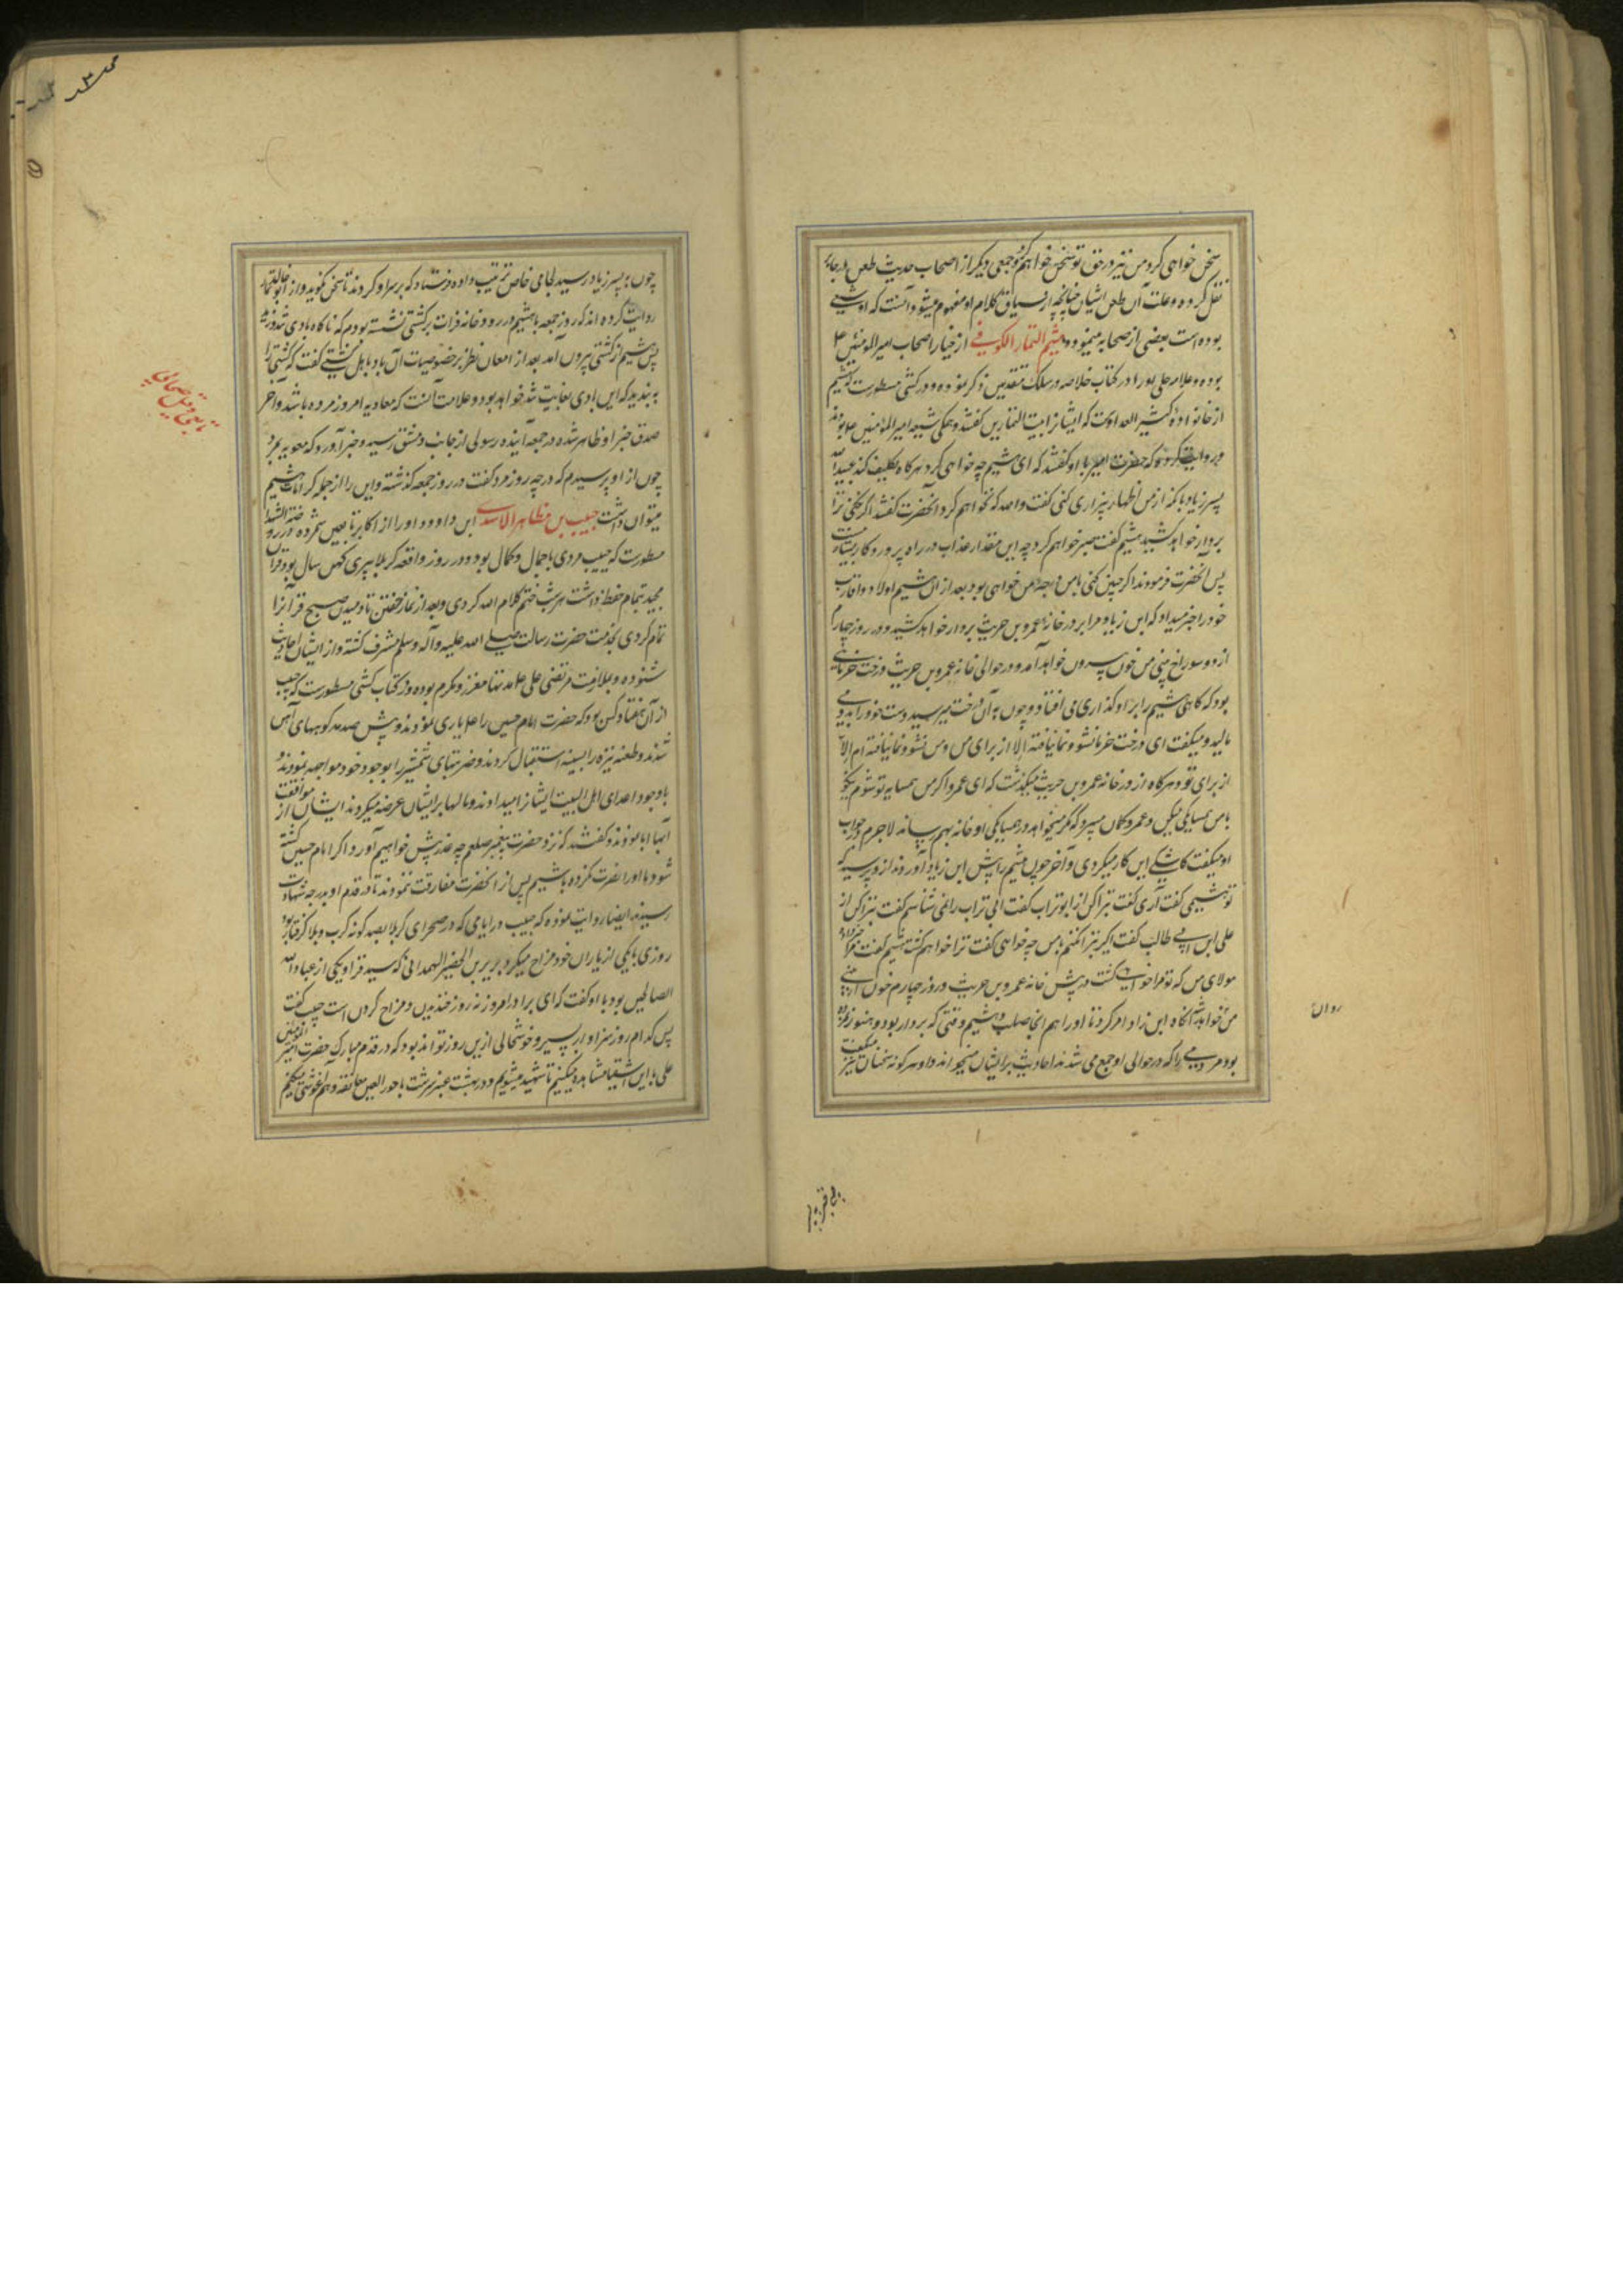 سخن خواهی کرد من نیز در حق تو سخن خواهم کرد و جمعی دیگر از اصحاب حدیث طعن
نقل کرده و علت آن طعن ایشان چنانچه از سیاق کلام او مفهوم میشود آنست که او شیعی
بوده است بعضی از صحابه مینموده میثم التمار الکوفی از خیار اصحاب امیر المومنین علی
بوده و علامه حلی او را در کتاب خلاصه در سلک متقدمین ذکر نموده و در کشی مسطورست که میثم
از خانواده کثیر العداوت که ایشانرا بیت التمارین گفتند و همگی شیعه امیر المؤمنین علی بودند
و روایت کرده که حضرت امیر با او گفتند که ای میثم چه خواهی کرد هرگاه تکلیف کند عبید الله
پسر زیاد با که از من اظهار بیزاری کنی گفت والله که نخواهم کرد آنحضرت گفتند اگر نکنی ترا
بردار خواهد کشید میثم گفت صبر خواهم کرد چه این مقدار عذاب در راه پروردگار بسیار نیست
پس آنحضرت فرمودند اگر چنین کنی با من در درجه من خواهی بود بعد از آن میثم اولاد و اقارب
خود را خبر میداد که ابن زیاد مرا بر در خانه عمرو بن حریث بردار خواهد کشید و در روز چهارم
از دو سوراخ بینی من خون بیرون خواهد آمد و در حوالی خانه عمرو بن حریث درخت خرمائی
بود که گاهی میثم را بر او گذاری می افتاد و چون به آن درخت میرسید دست خود را بدو می
مالید و میگفت ای درخت خرما نشو و نما نیافته الا از برای من و من نشو و نما نیافته ام الا
از برای تو و هرگاه از در خانه عمرو بن حریث میگذشت که ای عمرو اگر من همسایه تو شوم نیکو
با من همسایگی بکن و عمرو گمان میبرد که مگر میخواهد در همسایگی او خانه بهم رساند لاجرم در جواب
او میگفت کاشکی این کار میکردی و آخر چون میثم را پیش ابن زیاد آوردند از و پرسید که
تو میثمی گفت آری گفت تبرا کن از ابو تراب گفت ابی تراب را نمی شناسم گفت تبرا کن از
علی ابن ابی طالب گفت اگر تبرا نکنم با من چه خواهی گفت ترا خواهم کشت میثم گفت مرا خبر داد
مولای من که تو مرا خواهی کشت در پیش خانه عمرو بن حریث و روز چهارم خون از بینی
من خواهد آمد آنگاه ابن زیاد امر کرد تا او را هم آنجا صلب و میثم وقتی که بردار بود و هنوز نمرده
بود مردمی را که در حوالی او جمع می شدند احادیث بر ایشان میخواند و او هر گونه سخنان میگفت
روان
چون به پسر زیاد رسید لجامی خاص ترتیب داده فرستاد که بر سر او کردند تا سخن نگوید و از ابو خالد تمار
روایت کرده اند که روز جمعه با میثم در رودخانه فرات بر کشتی نشسته بودم که ناگاه بادی شد وزید
پس میثم از کشتی بیرون آمد بعد از امعان نظر بر خصوصیات آن باد باهل کشتی گفت که کشتی را
به بندید که این بادی بغایت شد خواهد بود و علامت آنست که معاویه امروز مرده باشد و آخر
صدق خبر او ظاهر شده در جمعه آینده رسولی از جانب دمشق رسید و خبر آورد که معویه بمرد
چون از او پرسیدم که در چه روز مرد گفت در روز جمعه گذشته و این را از جمله کرامات میثم
میتوان داشت حبیب بن مظاهر الاسدی ابن داوود او را از اکابر تابعین شمرده و در روضة الشهدا
مسطورست که حبیب مردی با جمال و کمال بود و در روز واقعه کربلا پیری کهن سال بود قرآن
مجید بتمام حفظ داشت هر شب ختم کلام الله کردی و بعد از نماز خفتن تا دمیدن صبح قرآنرا
تمام کردی بخدمت حضرت رسالت صلی الله علیه و آله و سلم مشرف گشته و از ایشان احادیث
شنوده و بملازمت مرتضی علی علیه مدتها معزز و مکرم بوده و در کتاب کشی مسطورست که حبیب
از آن هفتاد کس بود که حضرت امام حسین را علیه یاری نمودند و پیش صدمه کوههای آهن
شدند و طعنه نیزه را بسینه استقبال کردند و ضربتهای شمشیر را بوجود خود مواجهه نمودند و
با وجود اعدای اهل البیت ایشانرا میدادند و مالها بر ایشان عرضه میکردند ایشان از موافقت
آنها ابا نمودند و گفتند که نزد حضرت پیغمبر صلعم چه عذر پیش خواهیم آورد اگر امام حسین کشته
شود ما او را نصرت نکرده باشیم پس از آنحضرت مفارقت ننمودند تا در قدم او بدرجه شهادت
رسیدند ایضا روایت نموده که حبیب در ایامی که در صحرای کربلا بصد گونه کرب و بلا گرفتار بود
روزی با یکی از یاران خود مزاح میکرد بریر بن الحضیر الهمدانی که سید قرا و یکی از عباد الله
الصالحین بود با او گفت که ای برادر امروز نه روز خندیدن و مزاح کردن است حبیب گفت
پس کدام روز سزاوار سیر و خوشحالی ازین روز تواند بود که در قدم مبارک حضرت امیر المؤمنین
علی با این اشقیا مشاهده میکنیم تا شهید میشویم و در بهشت عنبر سرشت با حور العین معانقه و هم آغوشی میکنیم
تابعی و قیل صحابی